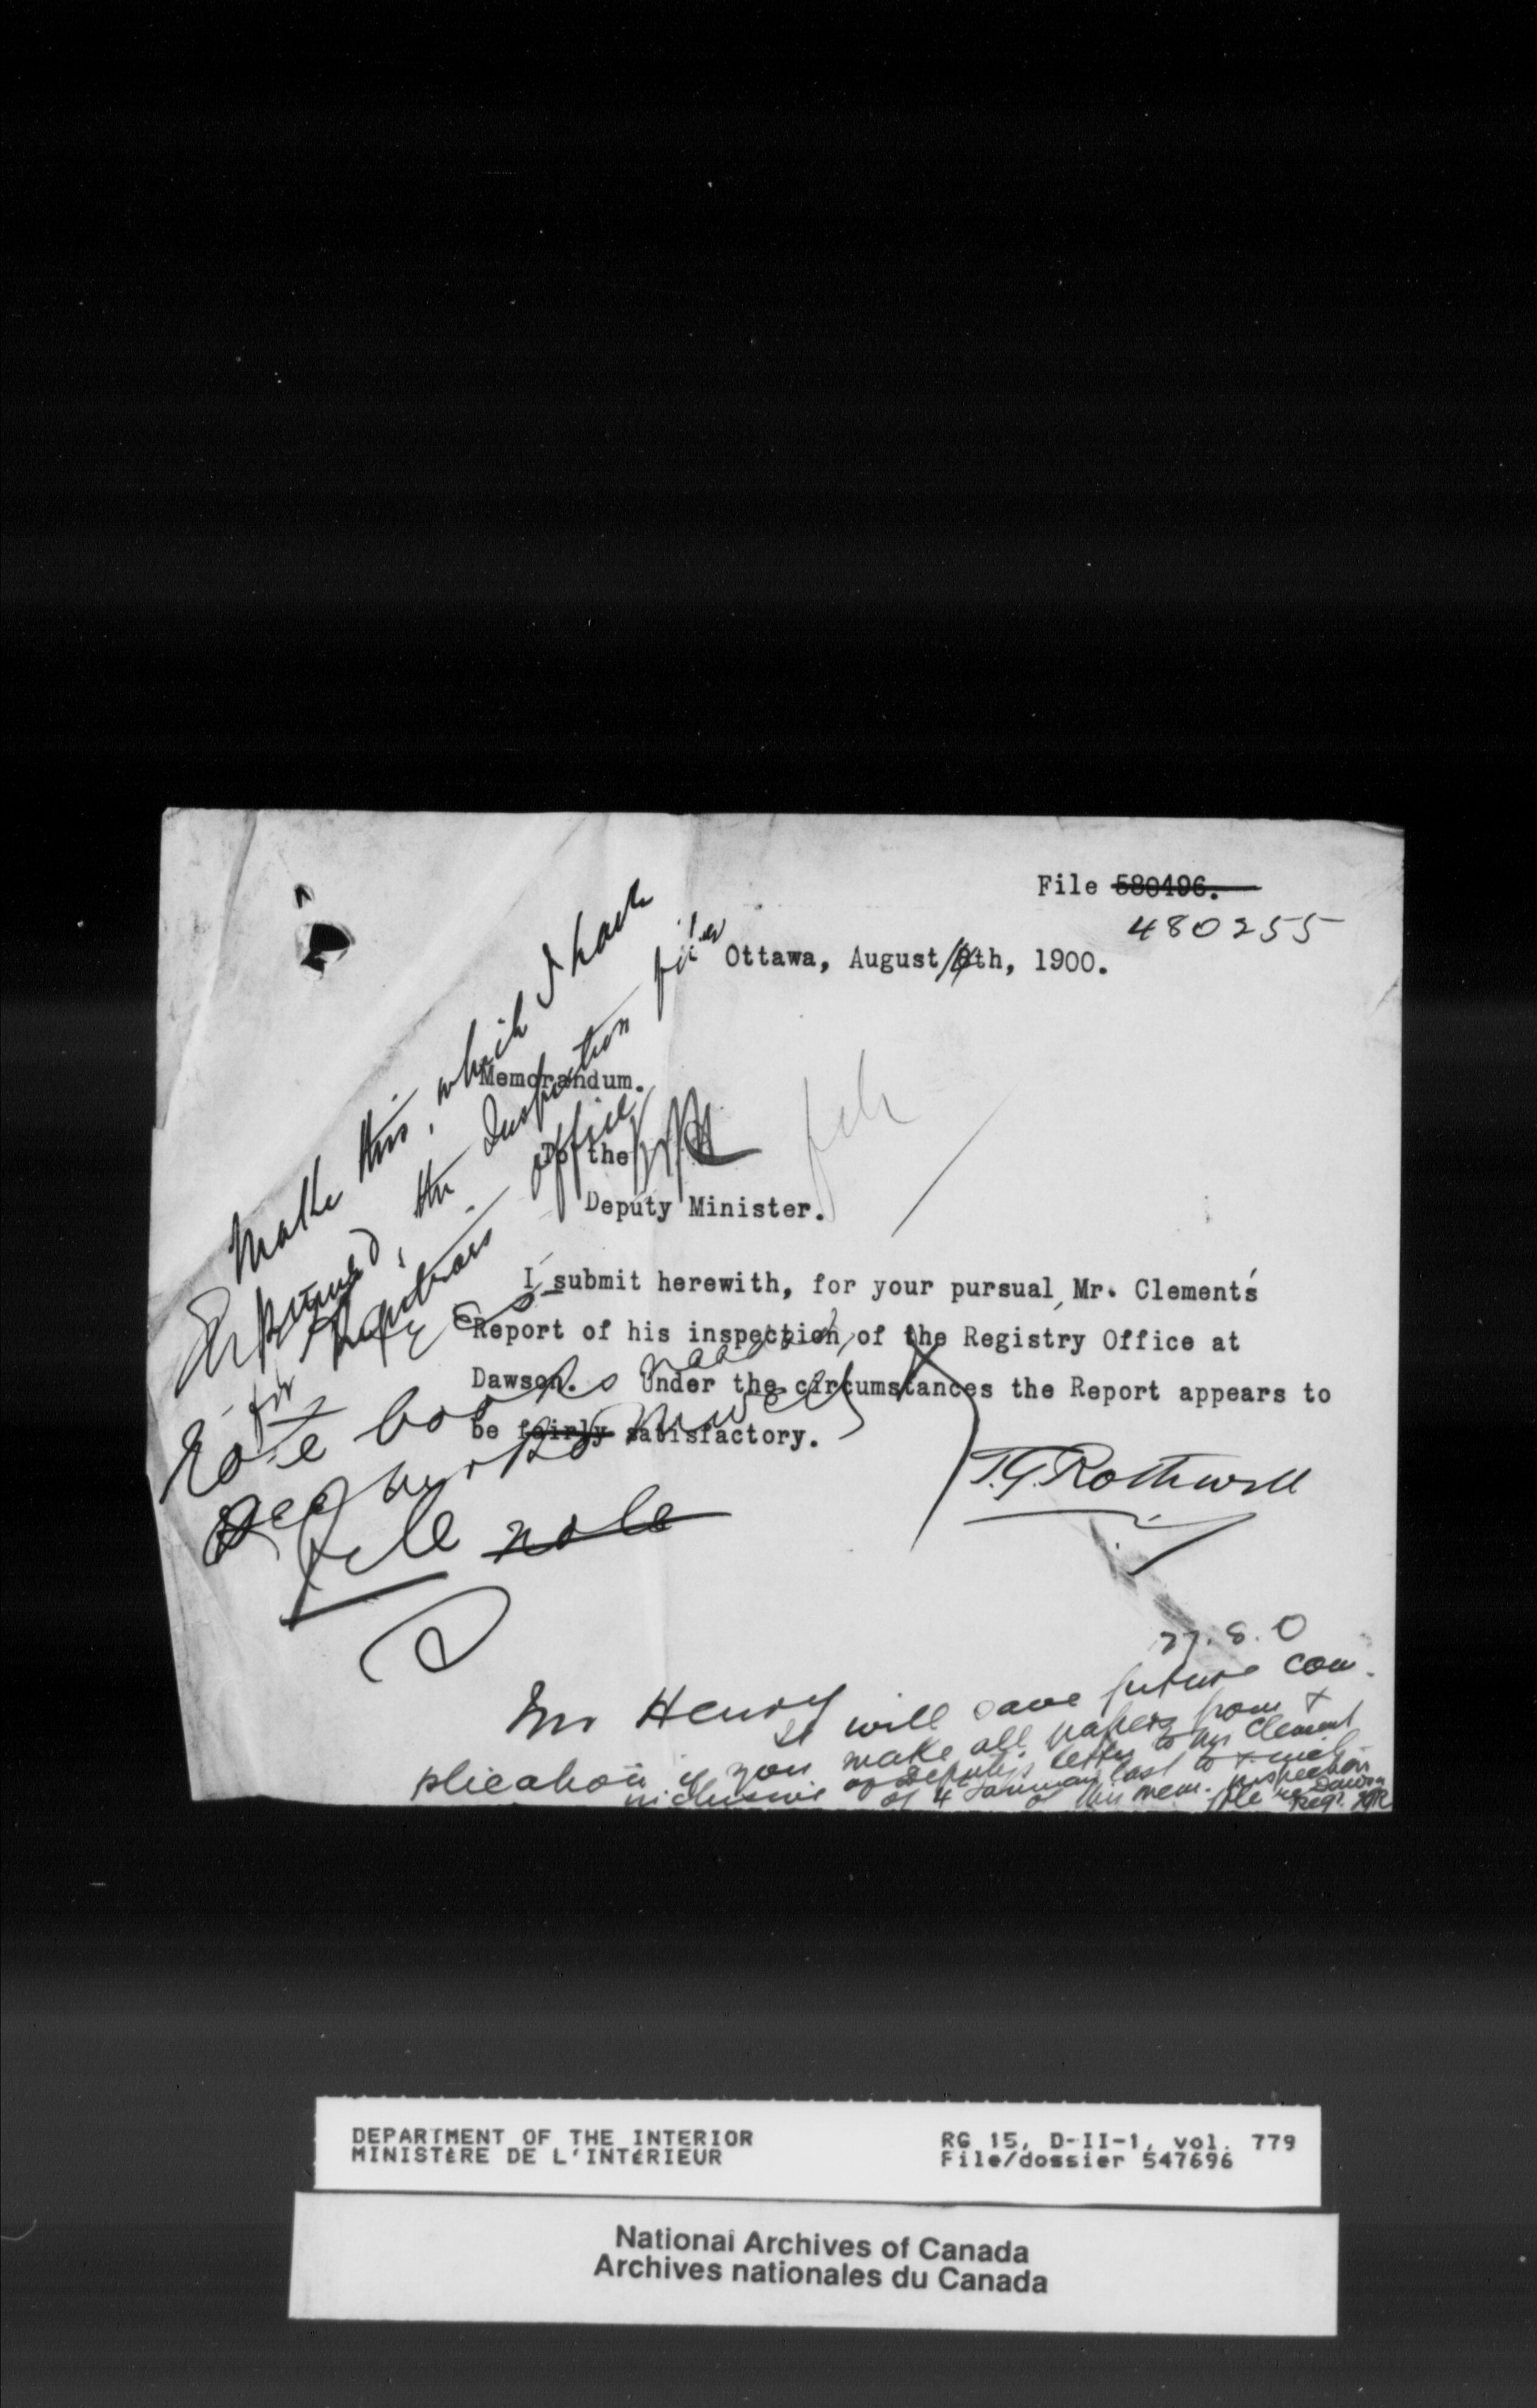 File 580496.
480255
Ottawa, August 14th, 1900.
Make this, which I have
returned, the Inspection file
for Registrars office
Memorandum.
To the
Deputy Minister.
I submit herewith, for your pursual, Mr. Clement's
Report of his inspection of the Registry Office at
Dawson. Under the circumstances the Report appears to
be fairly satisfactory.
T.G. Rothwell
Note books
file note
27.8.0
Mr Henry
It will save future com-
plication if you make all papers from &
inclusive of Deputy's letter to Mr Clement
of 4 January last to & including
this mem. inspection
file re Dawson
Regr. TGR
DEPARTMENT OF THE INTERIOR
MINISTÈRE DE L'INTÉRIEUR
RG 15, D-II-1, vol. 779
File/dossier 547696
National Archives of Canada
Archives nationales du Canada